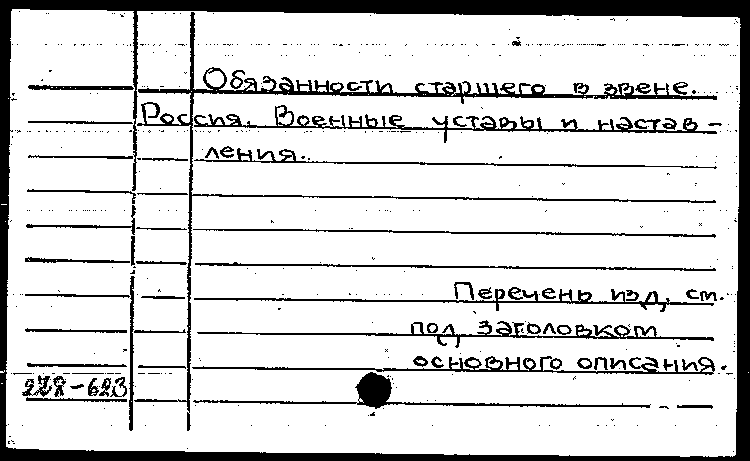 Обязанности старшего в звене.
Россия. Военные уставы и настав-
ления.
Перечень изд. см.
под заголовком
основного описания.
278-623